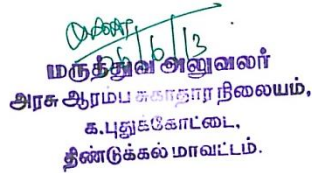 26/6/13
மருத்துவ அலுவலர்
அரசு ஆரம்ப சுகாதார நிலையம்,
க.புதுக்கோட்டை,
திண்டுக்கல் மாவட்டம்.